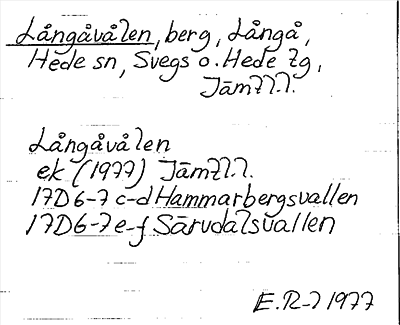 Långåvålen, berg, Långå,
Hede sn, Svegs o. Hede tg,
Jämtl.l.
Långåvålen
ek (1977) Jämtl.l.
17D6-7 c-d Hammarbergsvallen
17D6-7 e-f Särvdalsvallen
E.R-7 1977